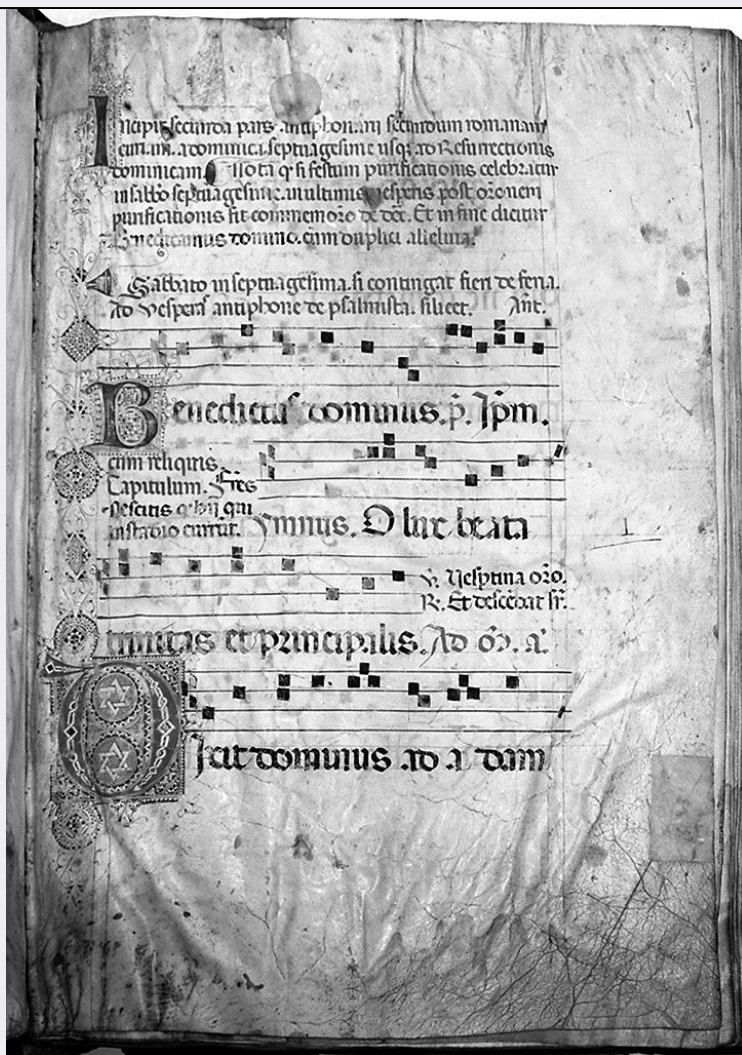 Incipit secunda pars antiphonarii secundum romanam
curiam. a dominica septuagesime usq; ad Resurrectionis
dominicam. Nota q si festum purificationis celebratur
in sabbo septuagesime. in ultimis vesperis post oronem
purificationis fit commemoro de dca. Et in fine dicitur
Benedicamus domino. cum duplici alleluia.
Sabbato in septuagesima. si contingat fieri de feria.
Ad vesperas antiphone de psalmista. silicet. Ant.
Benedictus dominus. p. Ipm.
cum reliquis.
Capitulum. Fres
nescitis q hii qui
in stadio currut. ymnus. O lux beata
V. Vesptina oro.
R. Et descedat sr.
trinitas et principalis. Ad
Dixit dominus ad adam
1